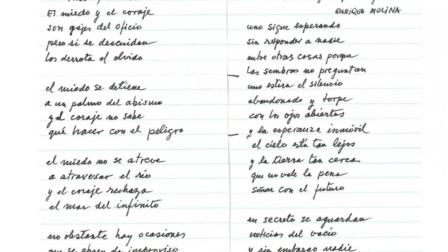 El miedo y el coraje
son gajes del oficio
pero si se descuidan
los derrota el olvido
el miedo se detiene
a un palmo del abismo
y el coraje no sabe
qué hacer con el peligro
el miedo no se atreve
a atravesar el río
y el coraje rechaza
el mar del infinito
no obstante hay ocasiones
que se abren de improviso
ENRIQUE MOLINA
uno sigue esperando
sin responder a nadie
entre otras cosas porque
las sombras no preguntan
uno espera el silencio
abandonado y torpe
con los ojos abiertos
y la esperanza inmóvil
el cielo está tan lejos
y la tierra tan cerca
que no vale la pena
soñar con el futuro
en secreto se aguardan
noticias del vacío
y sin embargo nadie